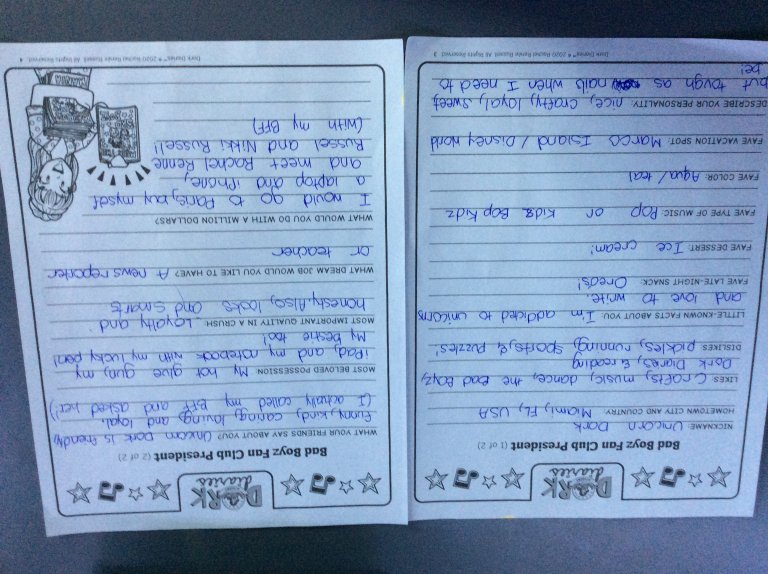 DORK
diaries
Bad Boyz Fan Club President (1 of 2)
NICKNAME: Unicorn Dork
HOMETOWN CITY AND COUNTRY: Miami, FL, USA
LIKES: Crafts, music, dance, the Bad Boyz,
Dork Diares, & reading
DISLIKES: pickles, running, sports, & puzzles!
LITTLE-KNOWN FACTS ABOUT YOU: I'm addicted to unicorns
and love to write.
FAVE LATE-NIGHT SNACK: Oreos!
FAVE DESSERT: Ice cream!
FAVE TYPE OF MUSIC: Pop or Kidz Bop Kidz
FAVE COLOR: Aqua/teal
FAVE VACATION SPOT: Marco Island / Disney World
DESCRIBE YOUR PERSONALITY: nice, crafty, loyal, sweet,
but tough as nails when I need to
be!
Dork Diaries™ © 2020 Rachel Renée Russell. All Rights Reserved. 3
DORK
diaries
Bad Boyz Fan Club President (2 of 2)
WHAT YOUR FRIENDS SAY ABOUT YOU: Unicorn Dork is friendly,
funny, kind, caring, loving, and loyal.
(I actually called my BFF and asked her!)
MOST BELOVED POSSESSION: My hot glue gun, my
iPad, and my notebook with my lucky pen!
My bestie too!
MOST IMPORTANT QUALITY IN A CRUSH: Loyalty and
honesty. Also, looks and smarts
WHAT DREAM JOB WOULD YOU LIKE TO HAVE? A news reporter
or teacher
WHAT WOULD YOU DO WITH A MILLION DOLLARS?
I would go to Paris, buy myself
a laptop and iPhone,
and meet Rachel Renne
Russel and Nikki Russel!
(with my BFF)
Dork Diaries™ © 2020 Rachel Renée Russell. All Rights Reserved. 4